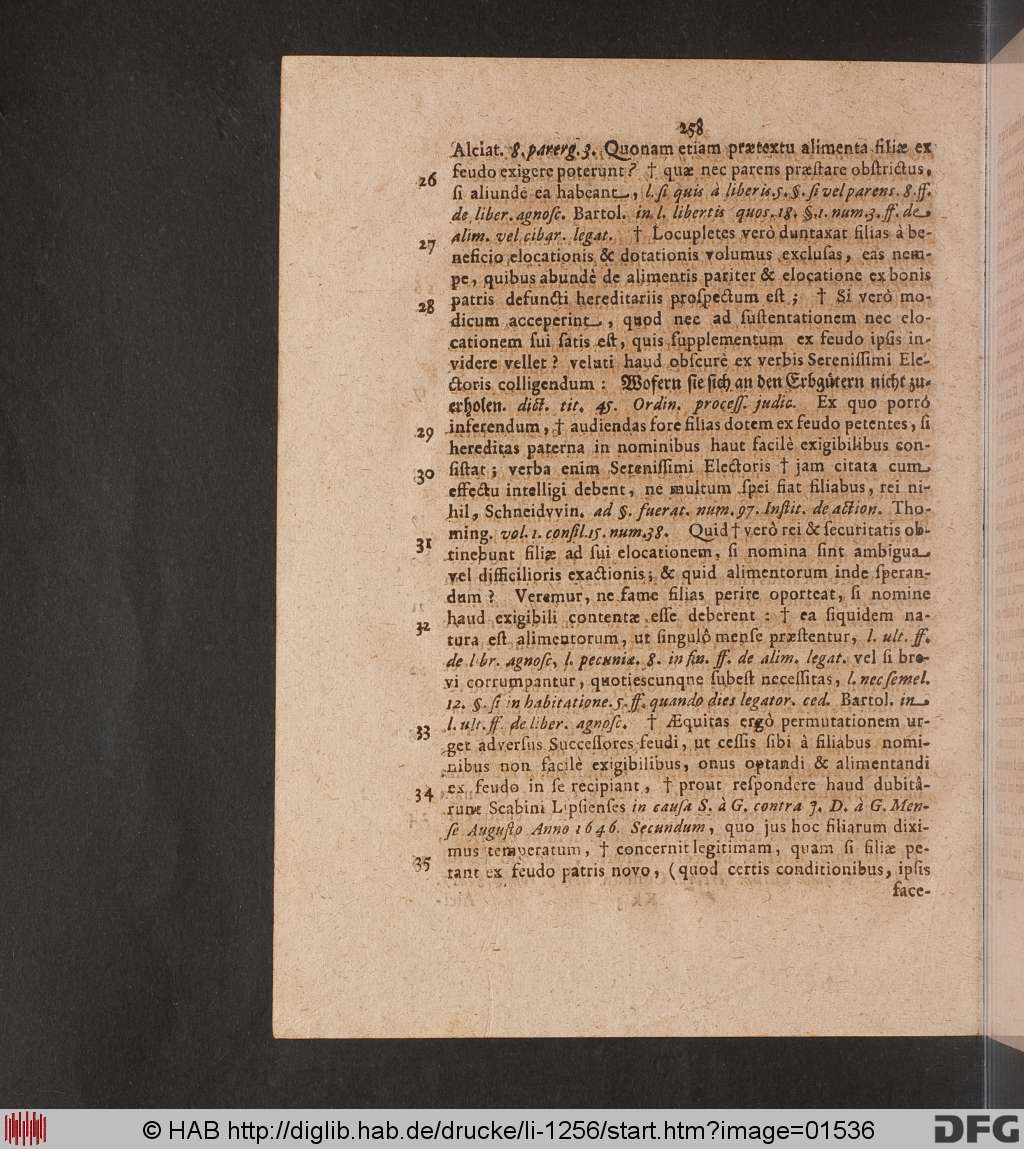 258
Alciat. 8. parerg. 3. Quonam etiam prætextu alimenta filiæ ex
26 feudo exigere poterunt? † quæ nec parens præſtare obſtrictus,
ſi aliunde ea habeant, l. ſi quis à liberis. 5. §. ſi vel parens. 8. ff.
de liber. agnoſc. Bartol. in l. libertis quos. 18. §. 1. num. 3. ff. de
27 alim. vel cibar. legat. † Locupletes verò duntaxat filias à be-
neficio elocationis & dotationis volumus excluſas, eas nem-
pe, quibus abundè de alimentis pariter & elocatione ex bonis
28 patris defuncti hereditariis proſpectum eſt; † Si verò mo-
dicum acceperint, quod nec ad ſuſtentationem nec elo-
cationem ſui ſatis eſt, quis ſupplementum ex feudo ipſis in-
videre vellet? veluti haud obſcurè ex verbis Sereniſſimi Ele-
ctoris colligendum: Wofern ſie ſich an den Erbgütern nicht zu-
erholen. dict. tit. 45. Ordin. proceſſ. judic. Ex quo porró
29 inferendum, † audiendas fore filias dotem ex feudo petentes, ſi
hereditas paterna in nominibus haut facilè exigibilibus con-
30 ſiſtat; verba enim Sereniſſimi Electoris † jam citata cum
effectu intelligi debent, ne multum ſpei fiat filiabus, rei ni-
hil, Schneidvvin. ad §. fuerat. num. 97. Inſtit. de action. Tho-
ming. vol. 1. conſil. 15. num. 38. Quid † verò rei & ſecuritatis ob-
31 tinebunt filiæ ad ſui elocationem, ſi nomina ſint ambigua
vel difficilioris exactionis; & quid alimentorum inde ſperan-
dum? Veremur, ne fame filias perire oporteat, ſi nomine
haud exigibili contentæ eſſe deberent: † ea ſiquidem na-
32 tura eſt alimentorum, ut ſingulô menſe præſtentur, l. ult. ff.
de lbr. agnoſc, l. pecuniæ. 8. in fin. ff. de alim. legat. vel ſi bre-
vi corrumpantur, quotiescunque ſubeſt neceſſitas, l. nec ſemel.
12. §. ſi in habitatione. 5. ff. quando dies legator. ced. Bartol. in
33 l. ult. ff. de liber. agnoſc. † Æquitas ergò permutationem ur-
get adverſus Succeſſores feudi, ut ceſſis ſibi à filiabus nomi-
nibus non facilè exigibilibus, onus optandi & alimentandi
34 ex feudo in ſe recipiant, † prout reſpondere haud dubitâ-
runt Scabini Lipſienſes in cauſa S. à G. contra J. D. à G. Men-
ſe Auguſto Anno 1646. Secundum, quo jus hoc filiarum dixi-
35 mus temperatum, † concernit legitimam, quam ſi filiæ pe-
tant ex feudo patris novo, (quod certis conditionibus, ipſis
face-
© HAB http://diglib.hab.de/drucke/li-1256/start.htm?image=01536
DFG